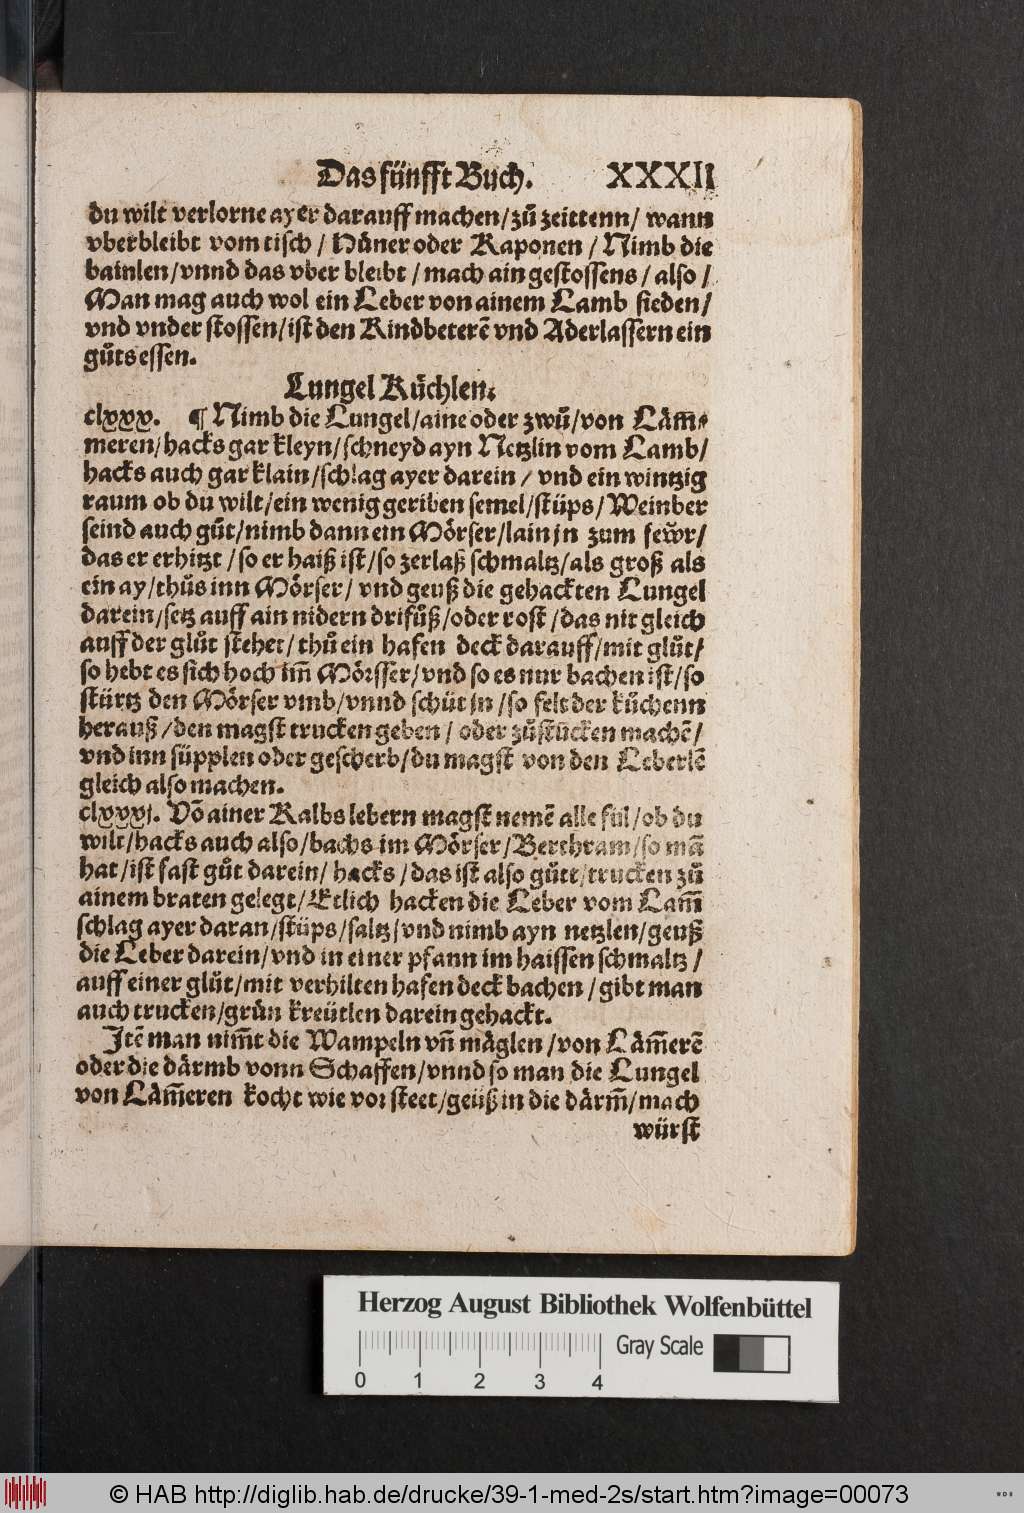 Das fünfft Buch. XXXII
du wilt verlorne ayer darauff machen/zů zeittenn/ wann
vberbleibt vom tisch / Hůner oder Kaponen / Nimb die
bainlen/vnnd das vber bleibt / mach ain gestossens / also /
Man mag auch wol ein Leber von ainem Lamb sieden/
vnd vnder stossen/ist den Kindbeterẽ vnd Aderlassern ein
gůts essen.
Lungel Kůchlen.
clxxx. ¶ Nimb die Lungel/aine oder zwů/von Läm̃⸗
meren/hacks gar kleyn/schneyd ayn Netzlin vom Lamb/
hacks auch gar klain/schlag ayer darein / vnd ein wintzig
raum ob du wilt/ein wenig geriben semel/stüps/Weinber
seind auch gůt/nimb dann ein Mörser/lain jn zum fewr/
das er erhitzt /so er haiß ist/so zerlaß schmaltz/als groß als
ein ay/thůs inn Mörser/ vnd geuß die gehackten Lungel
darein/setz auff ain nidern drifůß/oder rost/das nit gleich
auff der glůt stehet/thů ein hafen deck darauff/mit glůt/
so hebt es sich hoch im̃ Mörsser/vnd so es nur bachen ist/so
stürtz den Mörser vmb/vnnd schüt jn /so felt der kůchenn
herauß /den magst trucken geben / oder zůstucken machẽ/
vnd inn süpplen oder gescherb/du magst von den Leberlẽ
gleich also machen.
clxxxj. Võ ainer Kalbs lebern magst nemẽ alle fül/ob du
wilt/hacks auch also/bachs im Mörser/Berthram/so mã
hat/ist fast gůt darein/ hacks/das ist also gůtt/trucken zů
ainem braten gelegt/Etlich hacken die Leber vom Lam̃
schlag ayer daran/stüps/saltz/vnd nimb ayn netzlen/geuß
die Leber darein/vnd in einer pfann im haissen schmaltz /
auff einer glůt/mit verhilten hafen deck bachen / gibt man
auch trucken/grůn kreütlen darein gehackt.
Jtẽ man nim̃t die Wampeln vñ mäglen /von Läm̃erẽ
oder die därmb vonn Schaffen/vnnd so man die Lungel
von Läm̃eren kocht wie vor steet/geüß in die därm̃/mach
würst
Herzog August Bibliothek Wolfenbüttel
Gray Scale
0 1 2 3 4
© HAB http://diglib.hab.de/drucke/39-1-med-2s/start.htm?image=00073